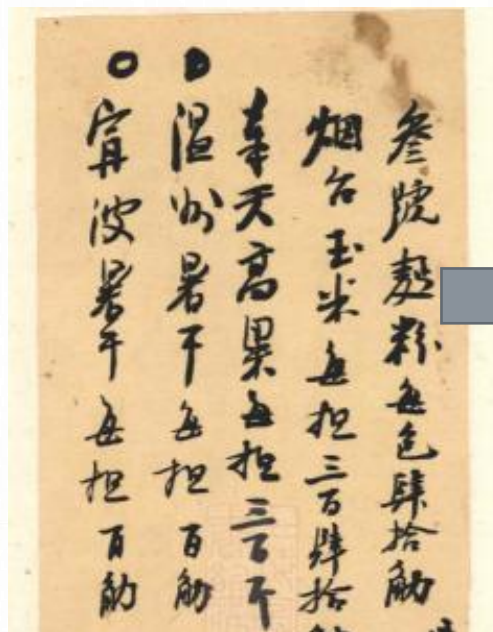 叁號麵粉每包肆拾觔
烟台玉米每担三百肆拾
奉天高粱每担三百斤
温州暑干每担百觔
寗波暑干每担百觔